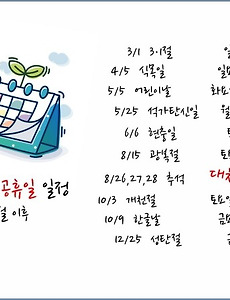 공휴일 일정
이후
3/1 3·1절
4/5 식목일
5/5 어린이날
5/25 석가탄신일
6/6 현충일
8/15 광복절
8/26,27,28 추석
10/3 개천절
10/9 한글날
12/25 성탄절